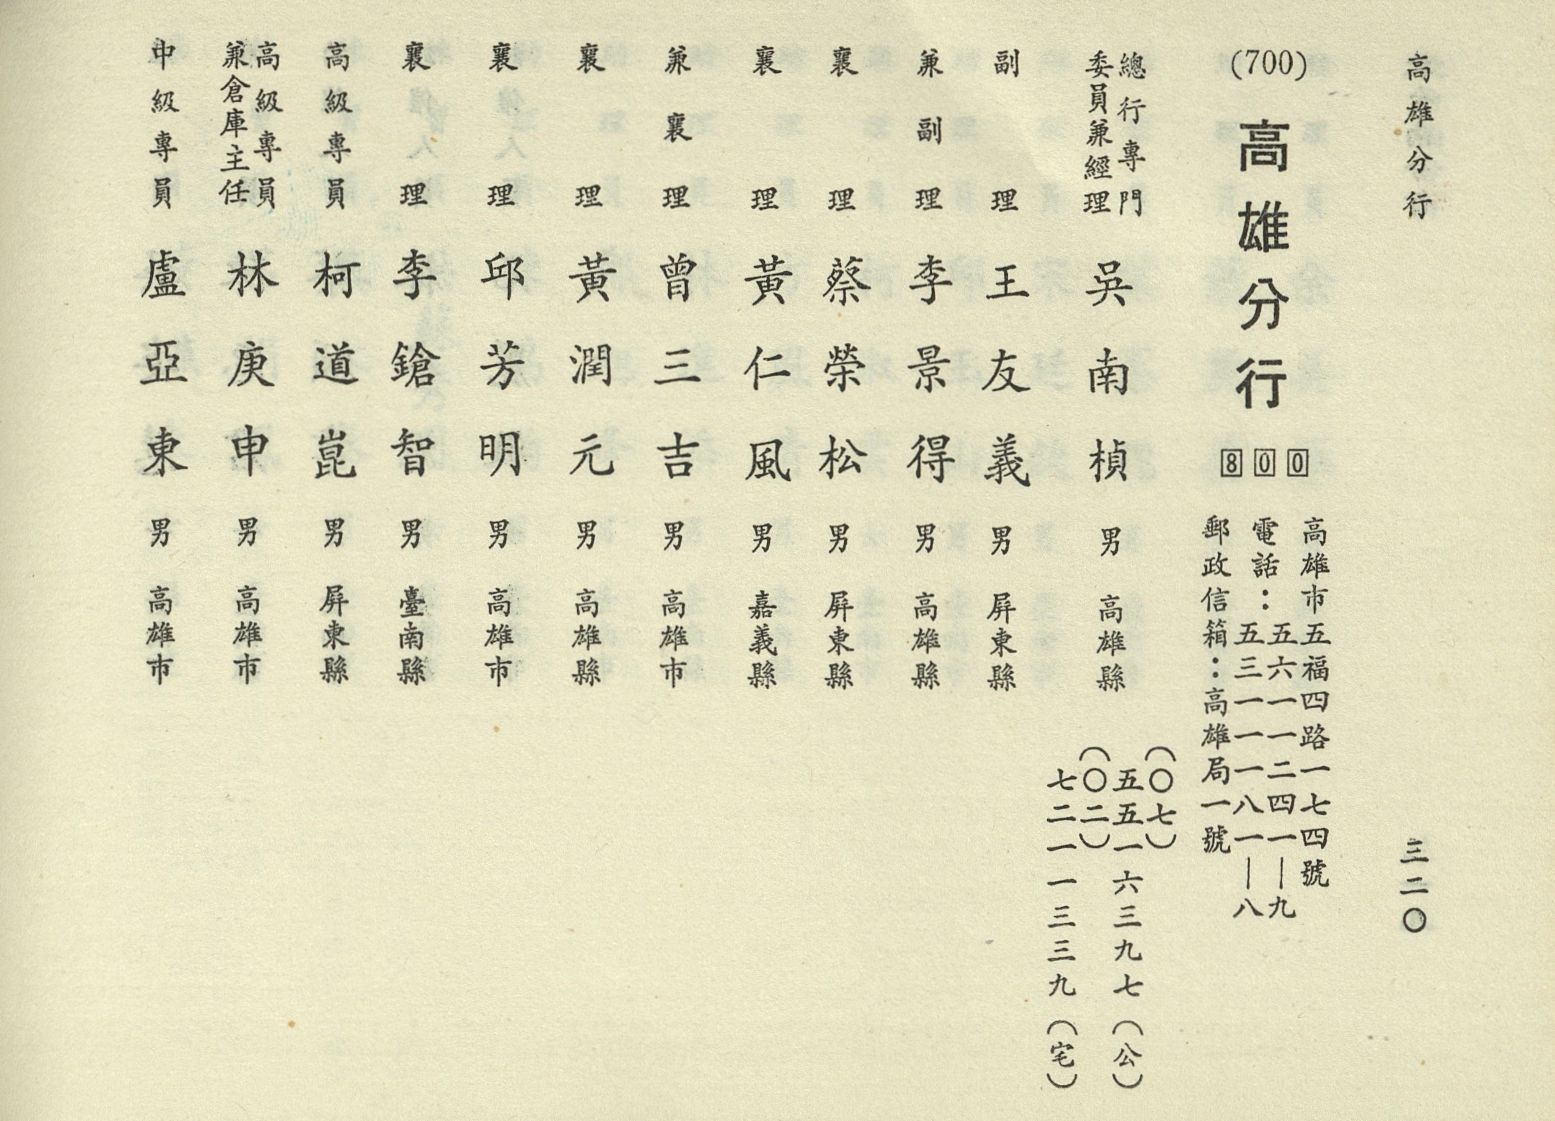 高雄分行
三二〇
(700)
高雄分行
800
高雄市五福四路一七四號
電話：五六一一二四一—九
五三一一一八一—八
郵政信箱：高雄局一號
總行專門
委員兼經理
吳南楨 男 高雄縣
（〇七）
五五一六三九七（公）
（〇二）
七二一一三三九（宅）
副理 王友義 男 屏東縣
兼副理 李景得 男 高雄縣
襄理 蔡榮松 男 屏東縣
襄理 黃仁風 男 嘉義縣
兼襄理 曾三吉 男 高雄市
襄理 黃潤元 男 高雄縣
襄理 邱芳明 男 高雄市
襄理 李鎗智 男 臺南縣
高級專員 柯道崑 男 屏東縣
高級專員
兼倉庫主任
林庚申 男 高雄市
中級專員 盧亞東 男 高雄市